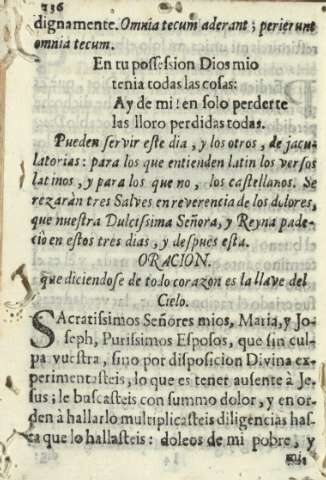 236
dignamente. Omnia tecum aderant; perierunt
omnia tecum.
En tu possession Dios mio
tenia todas las cosas:
Ay de mi! en solo perderte
las lloro perdidas todas.
Pueden servir este dia, y los otros, de jacu-
latorias: para los que entienden latin los versos
latinos, y para los que no, los castellanos. Se
rezarán tres Salves en reverencia de los dolores,
que nuestra Dulcissima Señora, y Reyna pade-
ciò en estos tres dias, y despues esta.
ORACION.
que diciendose de todo corazon es la llave del
Cielo.
SAcratissimos Señores mios, Maria, y Jo-
seph, Purissimos Esposos, que sin cul-
pa vuestra, sino por disposicion Divina ex-
perimentasteis, lo que es tener ausente à Je-
sus; le buscasteis con summo dolor, y en or-
den à hallarlo multiplicasteis diligencias has-
ta que lo hallasteis: doleos de mi pobre, y